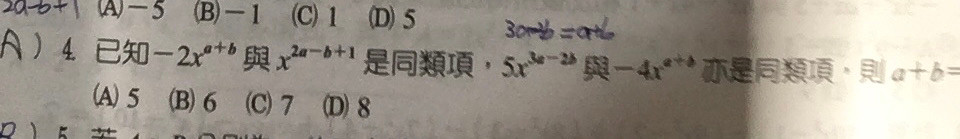 2a-b+1 (A)-5 (B)-1 (C) 1 (D) 5
3a-2b=a+b
A) 4. 已知-2x^{a+b}與x^{2a-b+1}是同類項,5x^{3a-2b}與-4x^{a+b}亦是同類項,則a+b=
(A) 5 (B) 6 (C) 7 (D) 8
) 5.